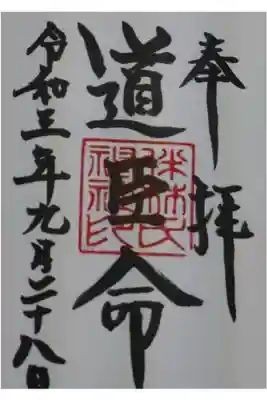 奉拝
道臣命
伴林氏
神社印
令和三年九月二十八日